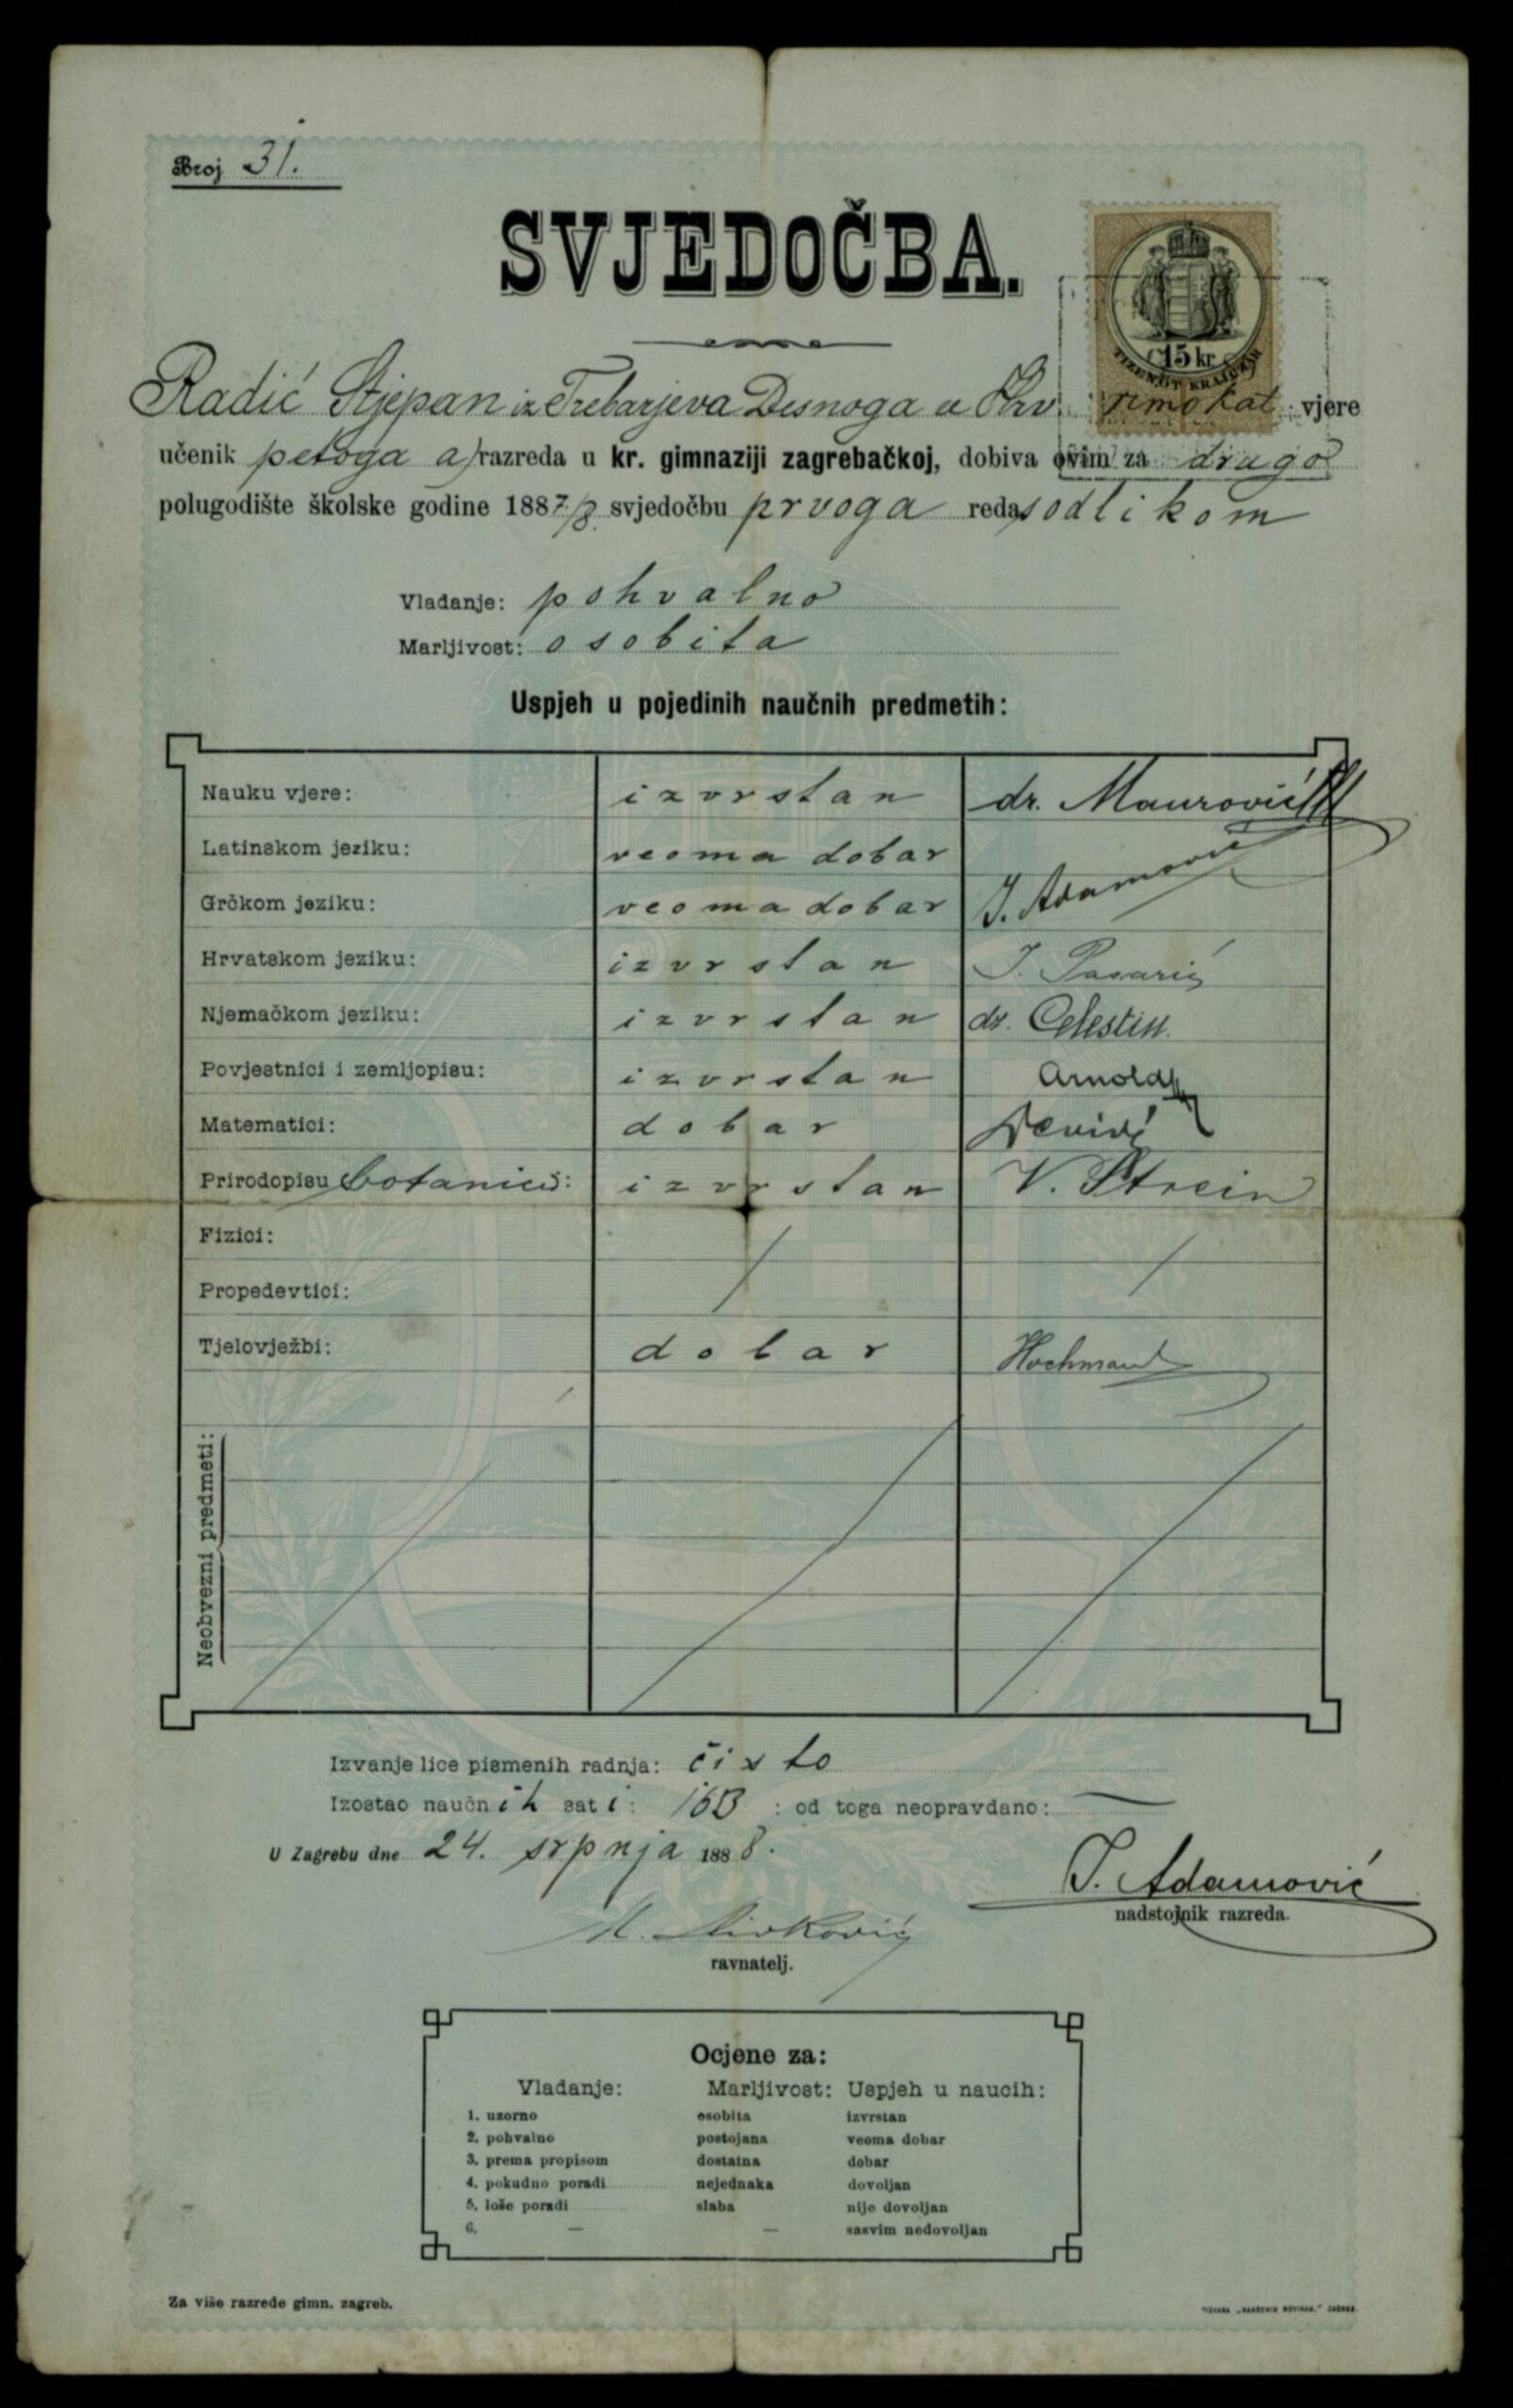 Broj 31.
SVJEDOČBA.
15 kr.
TIZENÖT KRAJCZÁR
Radić Stjepan iz Trebarjeva Desnoga u Hrv. rimokat. vjere
učenik petoga a) razreda u kr. gimnaziji zagrebačkoj, dobiva ovim za drugo
polugodište školske godine 1887/8. svjedočbu prvoga reda s odlikom
Vladanje: pohvalno
Marljivost: osobita
Uspjeh u pojedinih naučnih predmetih:
Nauku vjere: izvrstan dr. Maurović
Latinskom jeziku: veoma dobar
Grčkom jeziku: veoma dobar I. Adamović
Hrvatskom jeziku: izvrstan J. Pasarić
Njemačkom jeziku: izvrstan dr. Celestin.
Povjestnici i zemljopisu: izvrstan Arnold
Matematici: dobar Devidé
Prirodopisu botanici: izvrstan V. Strein
Fizici:
Propedevtici:
Tjelovježbi: dobar Hochman
Neobvezni predmeti:
Izvanje lice pismenih radnja: čisto
Izostao naučnih sati: 163 : od toga neopravdano: —
U Zagrebu dne 24. srpnja 1888.
I. Adamović
nadstojnik razreda.
ravnatelj.
Ocjene za:
Vladanje: Marljivost: Uspjeh u naucih:
1. uzorno osobita izvrstan
2. pohvalno postojana veoma dobar
3. prema propisom dostatna dobar
4. pokudno poradi nejednaka dovoljan
5. loše poradi slaba nije dovoljan
6. — — sasvim nedovoljan
Za više razrede gimn. zagreb.
TISKARA „NARODNIH NOVINAH," ZAGREB.